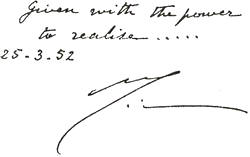 Given with the power
to realise.....
25-3.52